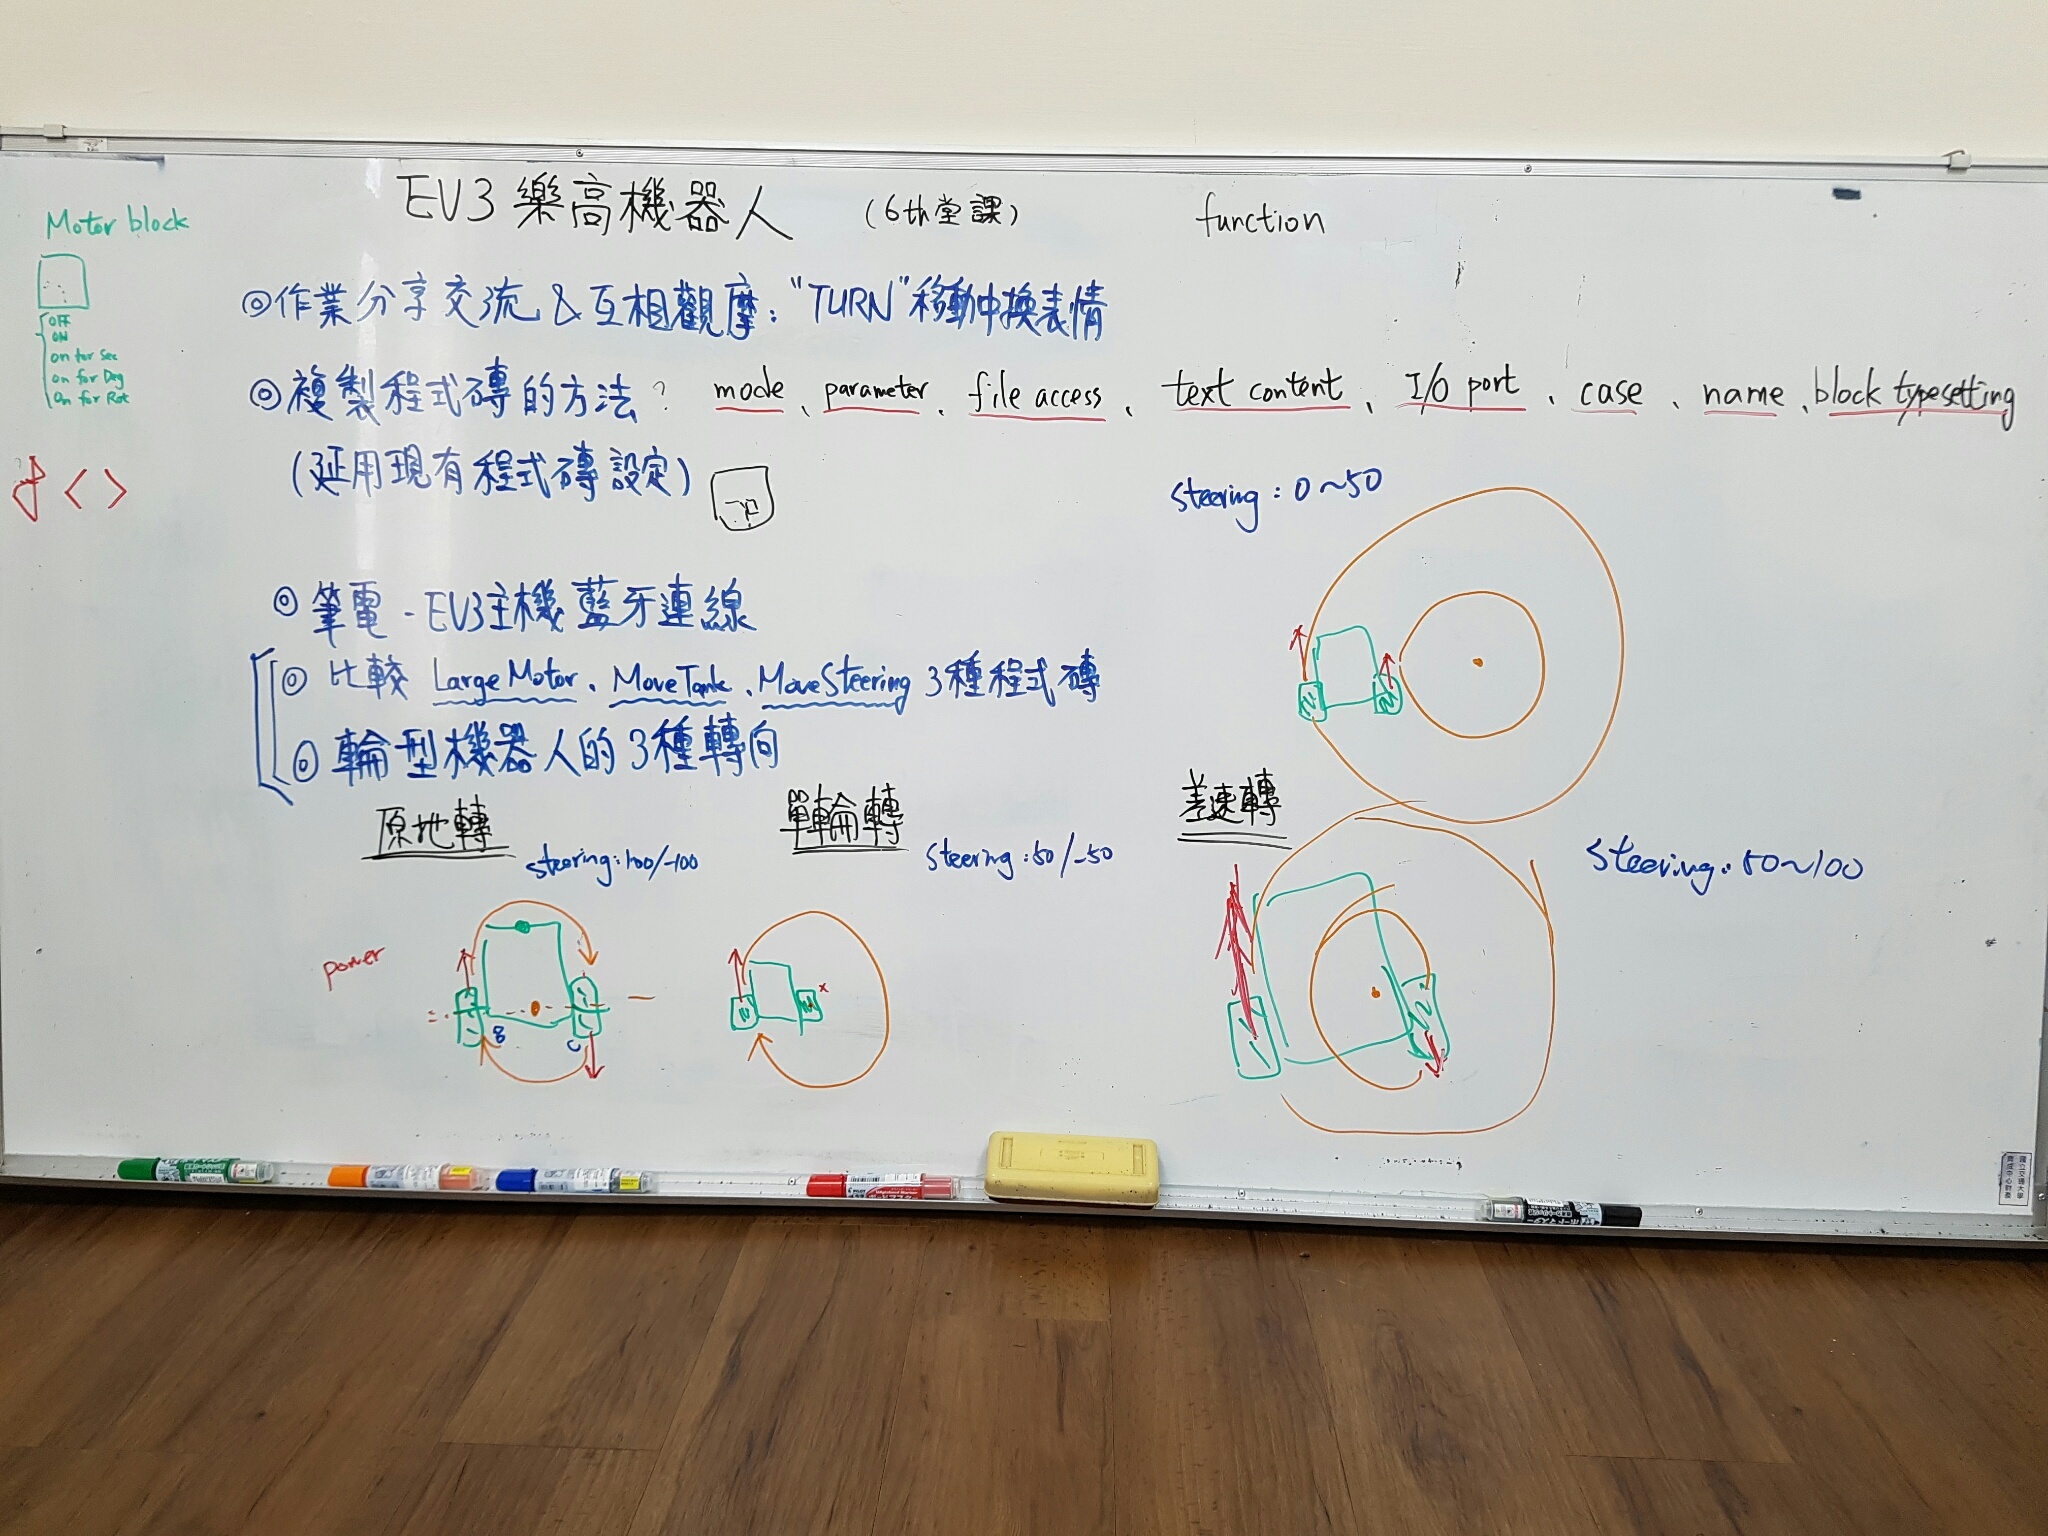 EV3樂高機器人 (6th堂課) function
Motor block
OFF
ON
on for Sec
on for Deg
On for Rot
◎作業分享交流 & 互相觀摩："TURN"移動中換表情
◎複製程式磚的方法? mode、parameter、file access、text content、I/O port、case、name、block typesetting
(延用現有程式磚設定)
◎筆電-EV3主機藍牙連線
◎比較 Large Motor、MoveTank、MoveSteering 3種程式磚
◎輪型機器人的3種轉向
原地轉
steering:100/-100
power
B
C
單輪轉
Steering:50/-50
差速轉
Steering:0~50
Steering:50~100
國立交通大學